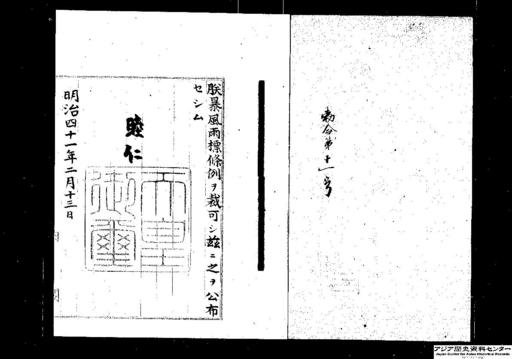 勅令第十一号
朕暴風雨標條例ヲ裁可シ茲ニ之ヲ公布
セシム
睦仁
天皇御璽
明治四十一年二月十三日
アジア歴史資料センター
Japan Center for Asian Historical Records